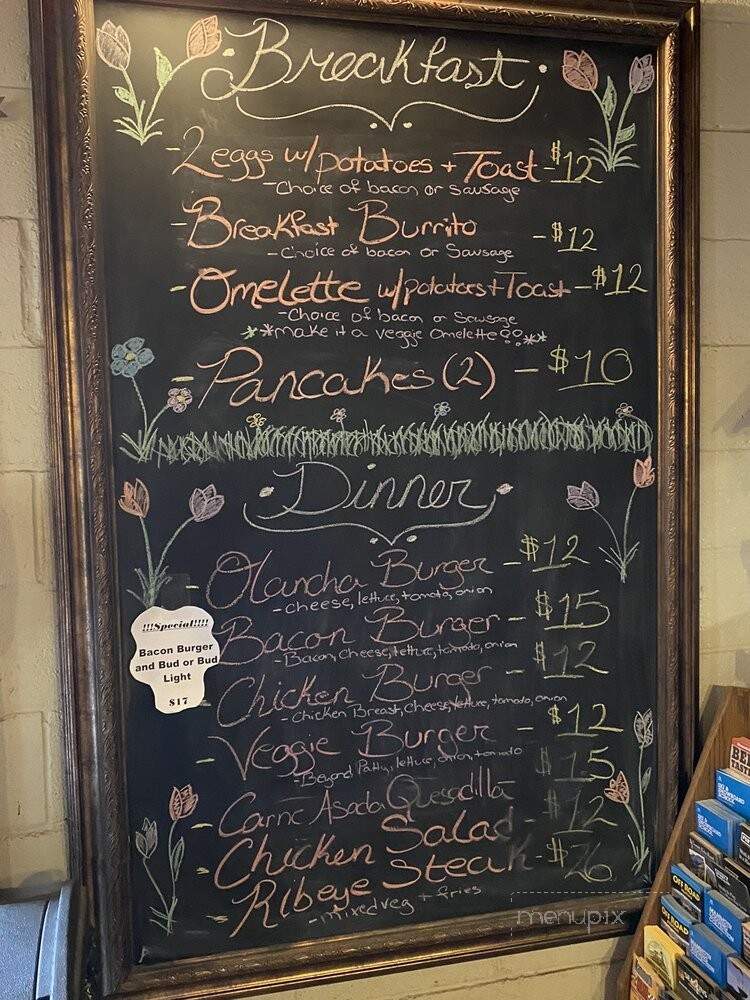 Breakfast
- 2 eggs w/ potatoes + Toast - $12
- Choice of bacon or Sausage
- Breakfast Burrito - $12
- Choice of bacon or Sausage
- Omelette w/ potatoes + Toast - $12
- Choice of bacon or Sausage
**make it a veggie Omelette!!**
- Pancakes (2) - $10
Dinner
- Olancha Burger - $12
- cheese, lettuce, tomato, onion
- Bacon Burger - $15
- Bacon, Cheese, lettuce, tomato, onion
- Chicken Burger - $12
- Chicken Breast, Cheese, lettuce, tomato, onion
- Veggie Burger - $12
- Beyond Patty, lettuce, onion, tomato
- Carne Asada Quesadilla $15
- Chicken Salad - $12
- Ribeye Steak - $26
- mixed veg + fries
!!!Special!!!!
Bacon Burger
and Bud or Bud
Light
$17
OFF ROAD
OFF ROAD
menupix